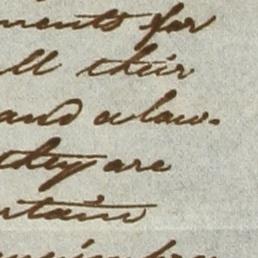 ments for
all their
and a law-
they are
ntain